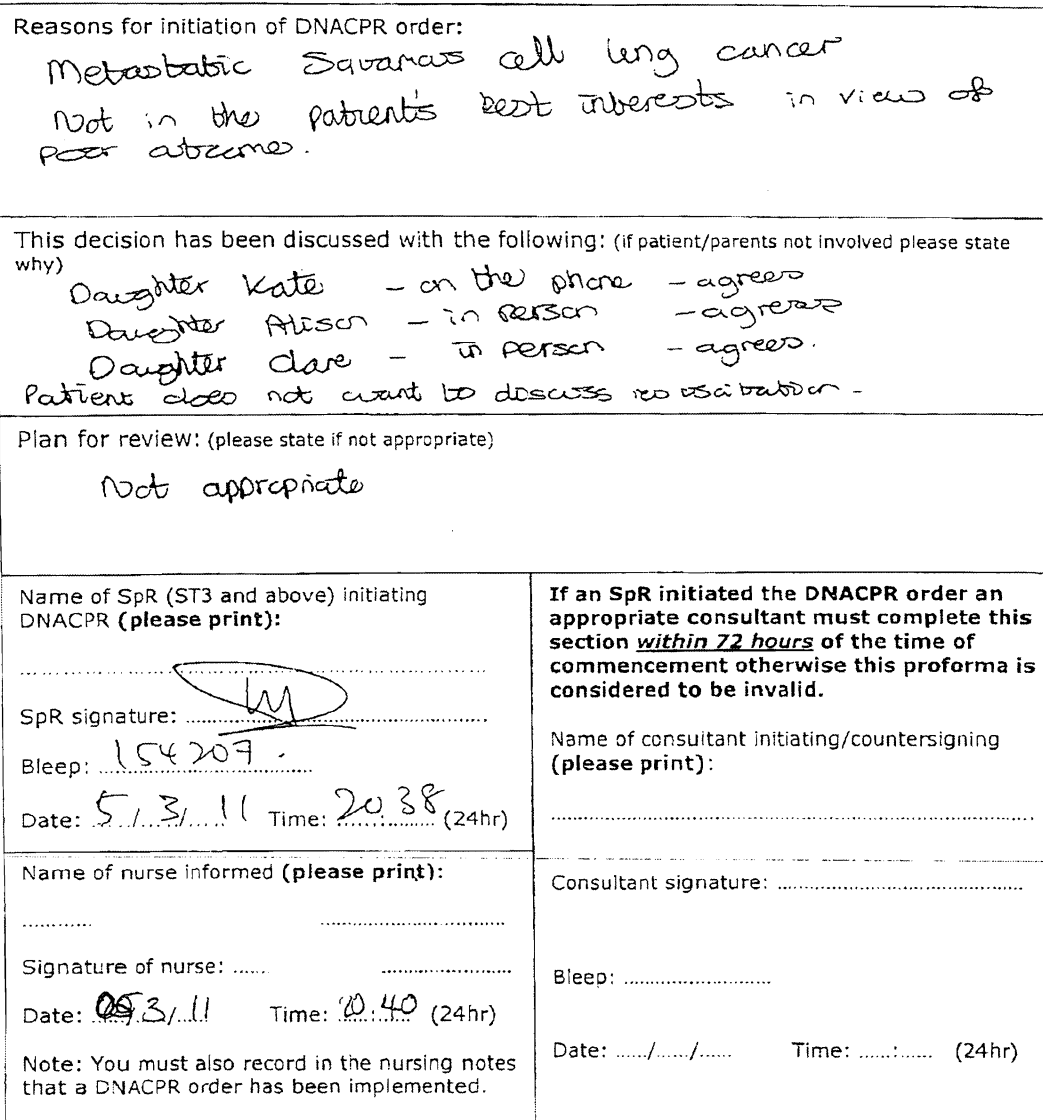 Reasons for initiation of DNACPR order:
Metastatic Squamous cell lung cancer
Not in the patient's best interests in view of
poor outcome.
This decision has been discussed with the following: (if patient/parents not involved please state
why)
Daughter Kate - on the phone - agrees
Daughter Alison - in person - agrees
Daughter Clare - in person - agrees.
Patient does not want to discuss resuscitation -
Plan for review: (please state if not appropriate)
Not appropriate
Name of SpR (ST3 and above) initiating
DNACPR (please print):
SpR signature:
Bleep: 154207.
Date: 5/3/11 Time: 20 38 (24hr)
Name of nurse informed (please print):
Signature of nurse:
Date: 05/3/11 Time: 20:40 (24hr)
Note: You must also record in the nursing notes
that a DNACPR order has been implemented.
If an SpR initiated the DNACPR order an
appropriate consultant must complete this
section within 72 hours of the time of
commencement otherwise this proforma is
considered to be invalid.
Name of consultant initiating/countersigning
(please print):
Consultant signature:
Bleep:
Date: ....../....../...... Time: ......:...... (24hr)